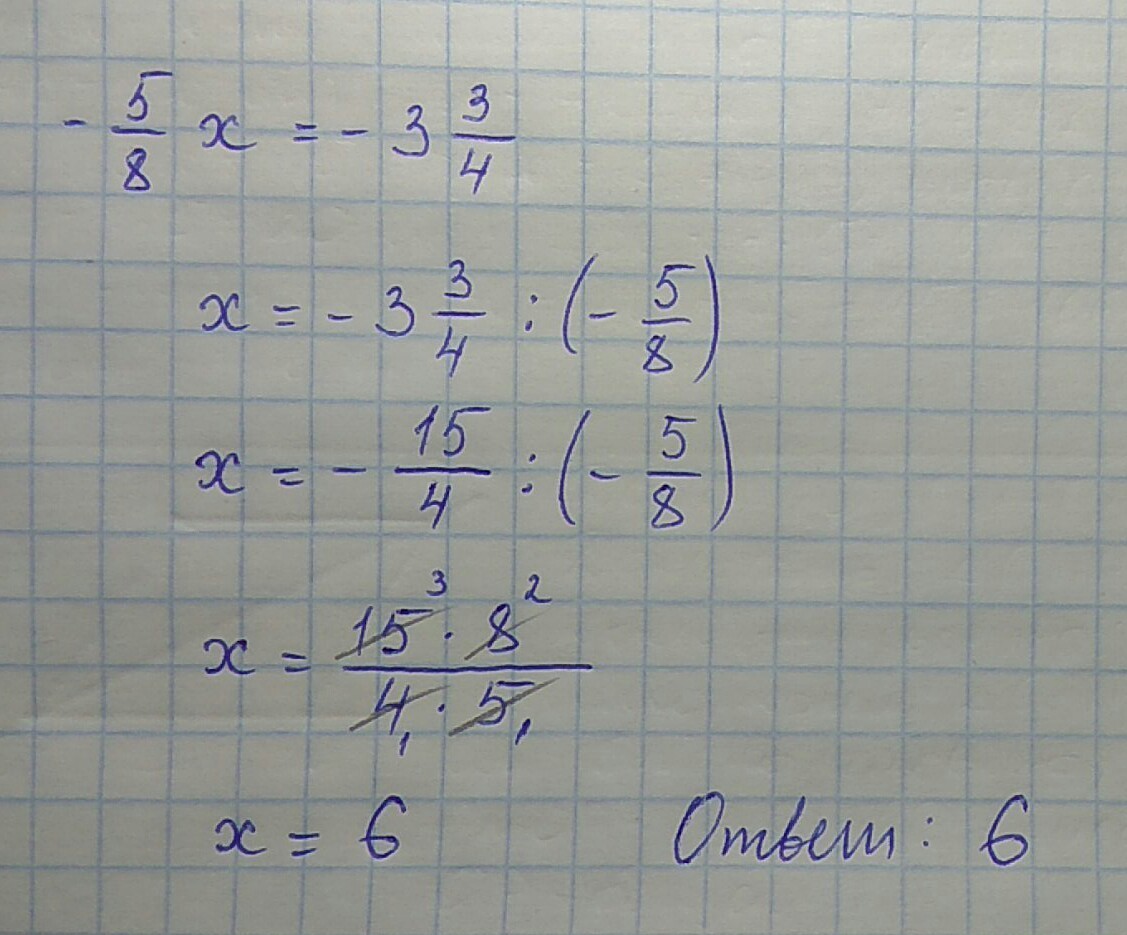 - 5/8 x = - 3 3/4
x = - 3 3/4 : (- 5/8)
x = - 15/4 : (- 5/8)
x = 15³ · 8² / 4₁ · 5₁
x = 6 Ответ: 6